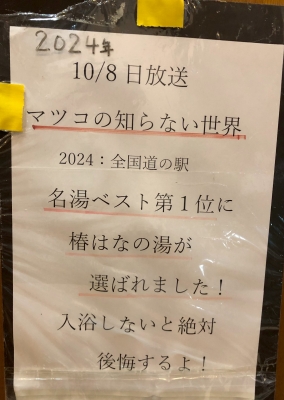 2024年
10/8日放送
マツコの知らない世界
2024：全国道の駅
名湯ベスト第1位に
椿はなの湯が
選ばれました！
入浴しないと絶対
後悔するよ！